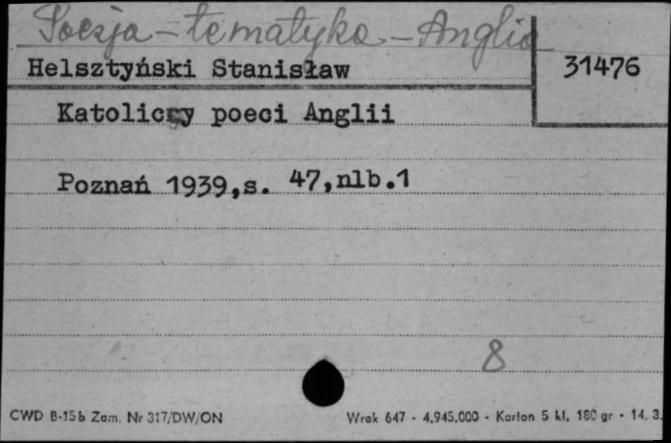 Poezja - tematyka - Anglia
Helsztyński Stanisław
31476
Katoliccy poeci Anglii
Poznań 1939,s. 47,nlb.1
8
CWD B-15b Zam. Nr 317/DW/ON
Wrak 647 - 4.945.000 - Karton 5 kl. 180 gr - 14. 3.